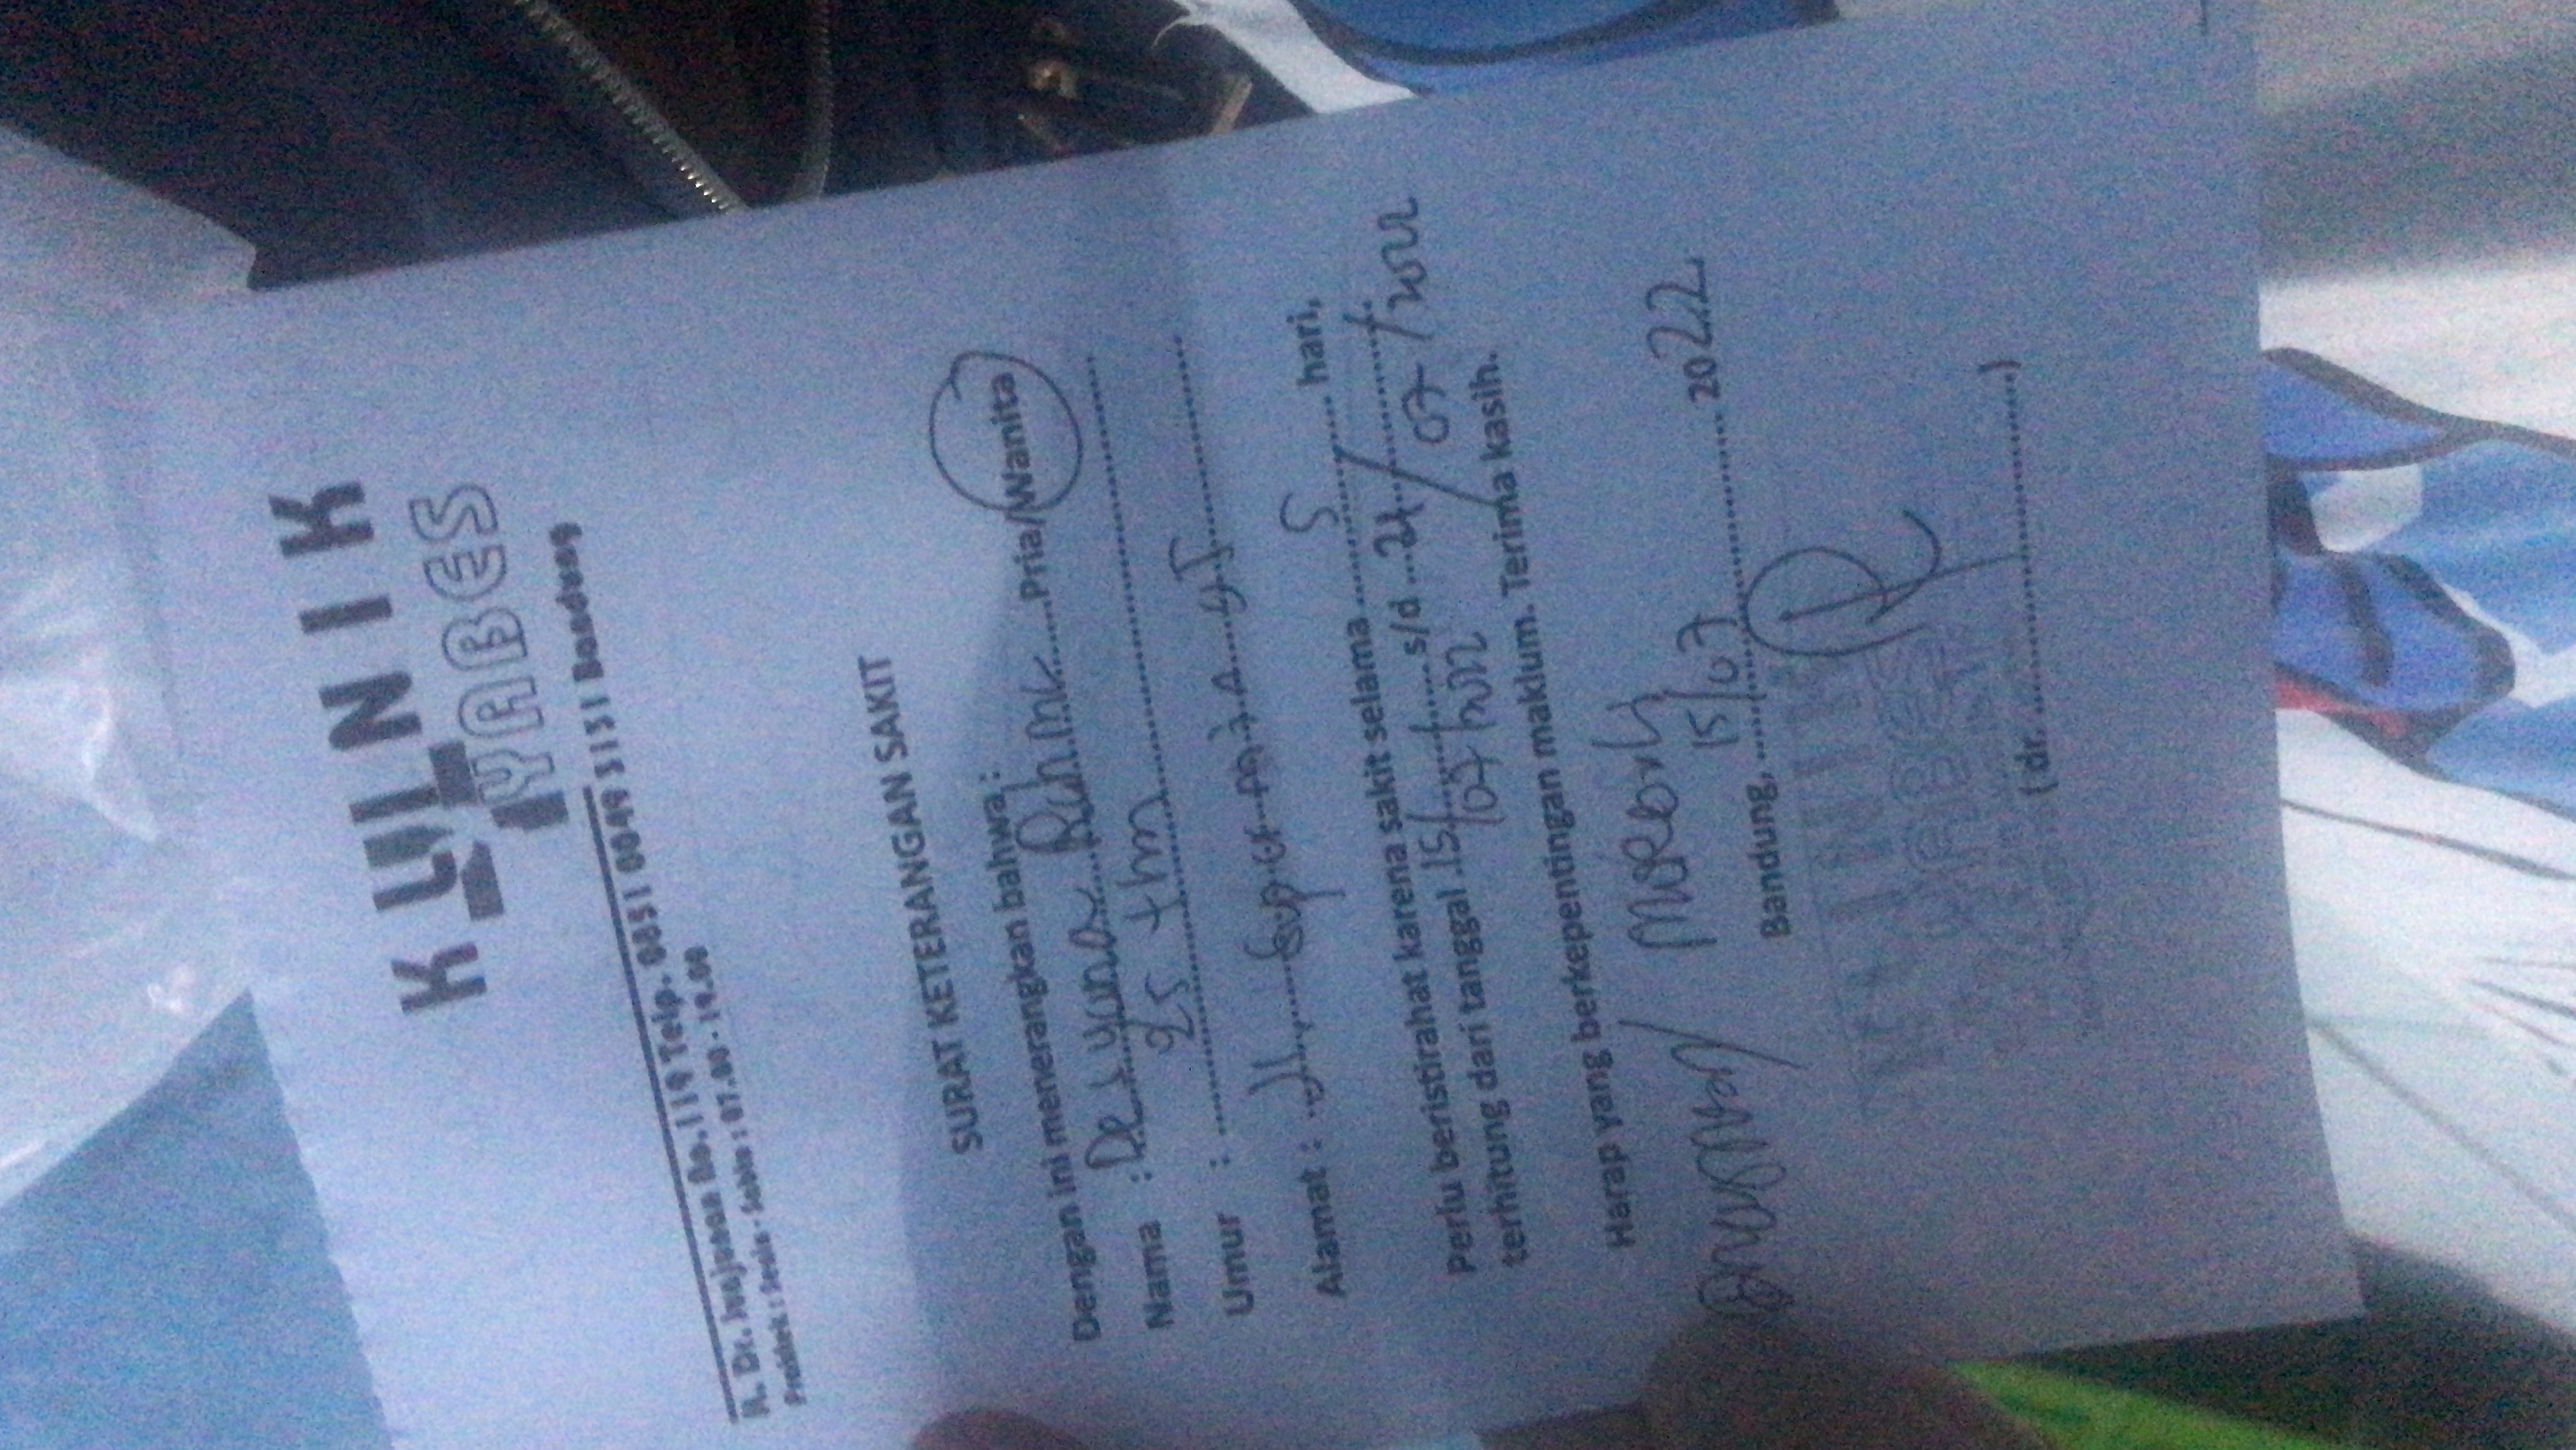 KLINIK
YABES
Jl. Dr. Junjunan No.119 Telp. 0851 0049 5151 Bandung
Praktek : Senin - Sabtu : 07.00 - 19.00
SURAT KETERANGAN SAKIT
Dengan ini menerangkan bahwa :
Nama : Desyana Rahma Pria/Wanita
Umur : 25 thn
Alamat : Jl.
Perlu beristirahat karena sakit selama 5 hari,
terhitung dari tanggal 15/07/2022 s/d 21/07/2022
Harap yang berkepentingan maklum. Terima kasih.
Bandung, 15/07 2022
KLINIK
YABES
(dr. )